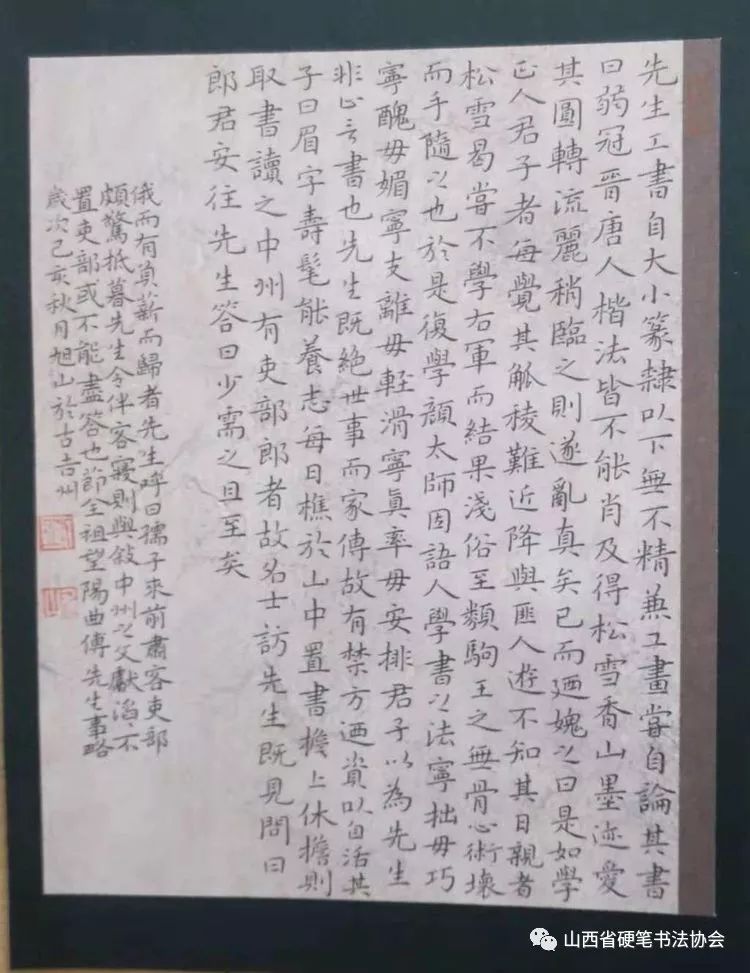 先生工书自大小篆隸以下無不精兼工畫嘗自論其書
曰弱冠晋唐人楷法皆不能肖及得松雪香山墨迹愛
其圓轉流麗稍臨之則遂亂真矣已而廼媿之曰是如學
正人君子者每覺其觚稜難近降與匪人遊不知其日親者
松雪曷嘗不學右軍而結果淺俗至類駒王之無骨心術壞
而手隨之也於是復學顔太師因語人學書之法寧拙毋巧
寧醜毋媚寧支離毋輕滑寧真率毋安排君子以為先生
非止言書也先生既絶世事而家傳故有禁方廼資以自活其
子曰眉字壽髦能養志每日樵於山中置書擔上休擔則
取書讀之中州有吏部郎者故名士訪先生既見問曰
郎君安往先生答曰少需之且至矣
俄而有負薪而歸者先生呼曰孺子來前肅客吏部
頗驚抵暮先生令伴客寢則與叙中州之文獻滔滔不
置吏部或不能盡答也節全祖望陽曲傅先生事略
歲次己亥秋月旭山於古吉州
山西省硬笔书法协会